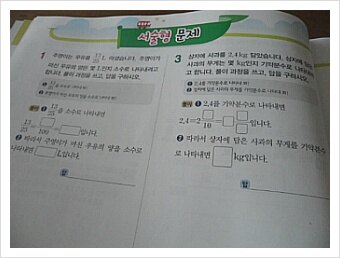 서술형 문제
1 주영이는 우유를 13/25 L 마셨습니다. 주영이가
마신 우유의 양은 몇 L인지 소수로 나타내려고
합니다. 풀이 과정을 쓰고, 답을 구하시오.
풀이 ① 13/25을 소수로 나타내면
13/25=□/100=□입니다.
② 따라서 주영이가 마신 우유의 양을 소수로
나타내면 □ L입니다.
답
3 상자에 사과를 2.4 kg 담았습니다. 상자에 담은
사과의 무게는 몇 kg인지 기약분수로 나타내려
고 합니다. 풀이 과정을 쓰고, 답을 구하시오.
① 2.4를 기약분수로 나타내면
② 상자에 담은 사과의 무게를 기약분수로 나타내면
풀이 ① 2.4를 기약분수로 나타내면
2.4=2□/10=□□/□입니다.
② 따라서 상자에 담은 사과의 무게를 기약분수
로 나타내면 □□/□ kg입니다.
답